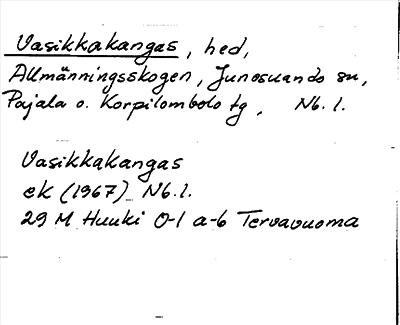 Vasikkakangas, hed,
Allmänningsskogen, Junosuando sn,
Pajala o. Korpilombolo tg, Nb. l.
Vasikkakangas
ek (1967) Nb. l.
29 M Huuki 0-1 a-b Tervavuoma